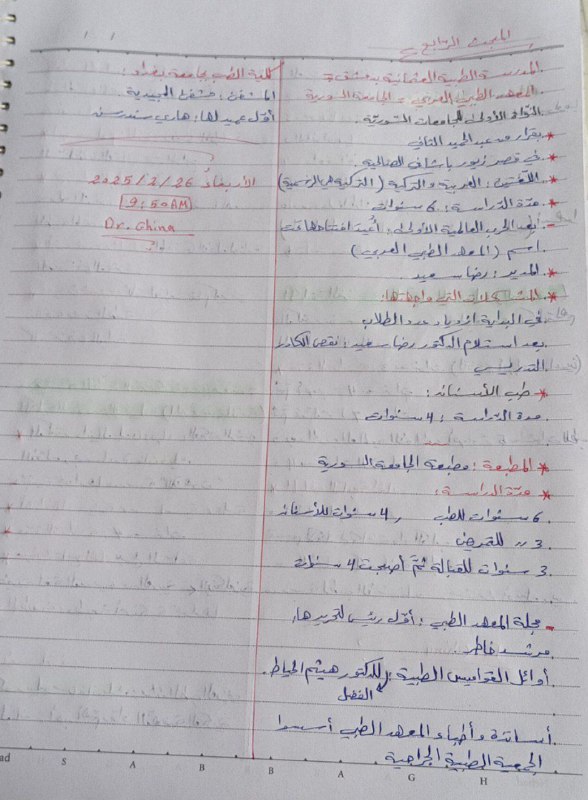 المبحث الرابع
المدرسة الطبية العثمانية بدمشق =
المعهد الطبي العربي = الجامعة السورية
النواة الأولى للجامعات السورية.
* بقرار من عبد الحميد الثاني
* في قصر زيور باشا في الصالحية.
* اللغتين: العربية والتركية (التركية هي الرسمية)
* مدة الدراسة: 6 سنوات
- بعد الحرب العالمية الأولى: أُعيد افتتاحها تحت
اسم (المعهد الطبي العربي)
* المدير: رضا سعيد
* المشكلات التي واجهتها:
في البداية ازدياد عدد الطلاب
بعد استلام الدكتور رضا سعيد: نقص الكادر
التدريسي
* طب الأسنان:
مدة الدراسة: 4 سنوات
* المطبعة: مطبعة الجامعة السورية
* مدة الدراسة:
6 سنوات للطب، 4 سنوات للأسنان
3 " للتمريض
3 سنوات للقبالة ثمَّ أصبحت 4 سنوات
- مجلة المعهد الطبي: أوّل رئيس لتحريرها:
مرشد خاطر
أوائل القواميس الطبية: للدكتور هيثم الخياط.
الفضل
أساتذة وأطباء المعهد الطبي أسسوا
الجمعية الطبية الجراحية
كلية الطب بجامعة بغداد:
المشفى: مشفى المجيدية
أوّل عميد لها: هاري سندرسن
الأربعاء 2025/2/26
9:50AM
Dr. Ghina
S A B B A G H